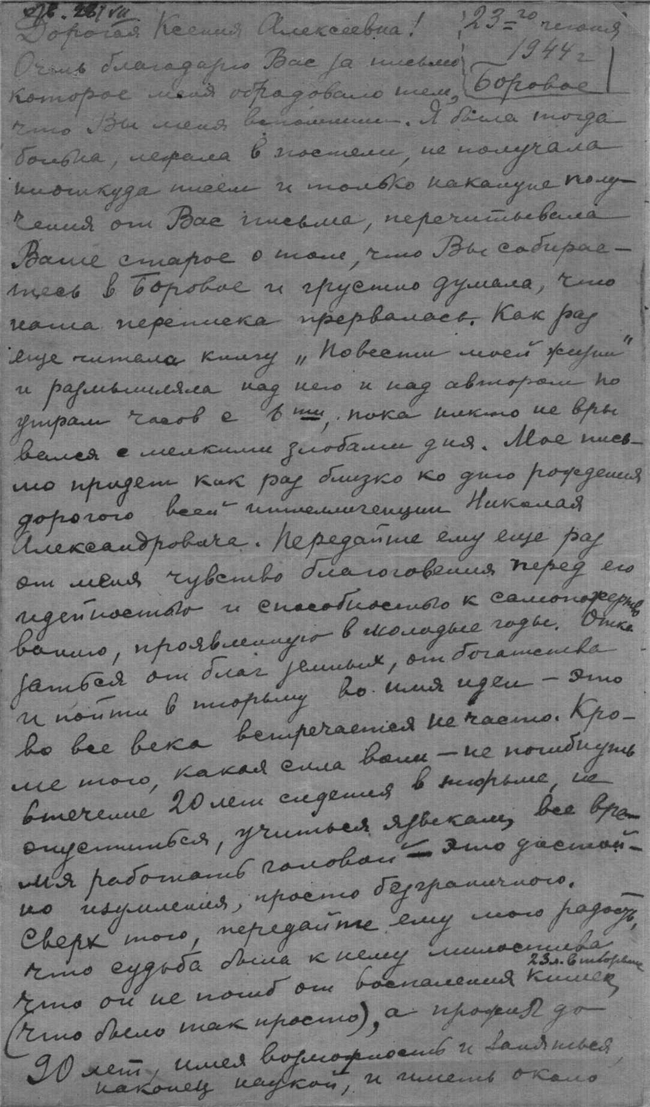 28/VII
Дорогая Ксения Алексеевна!
23-го июня
1944 г
Боровое
Очень благодарю Вас за письмо
которое меня обрадовало тем,
что Вы меня вспомнили. Я была тогда
больна, лежала в постели, не получала
ниоткуда писем и только накануне полу-
чения от Вас письма, перечитывала
Ваше старое о том, что Вы собирае-
тесь в Боровое и грустно думала, что
наша переписка прервалась. Как раз
еще читала книгу „Повести моей жизни"
и размышляла над нею и над автором по
утрам часов с 6ти, пока никто не вры
вался с мелкими злобами дня. Мое пись-
мо придет как раз близко ко дню рождения
дорогого всей интеллигенции Николая
Александровича. Передайте ему еще раз
от меня чувство благоговения перед его
идейностью и способностью к самопожертво
ванию, проявленную в молодые годы. Отка
заться от благ земных, от богатства
и пойти в тюрьму во имя идеи – это
во все века встречается не часто. Кро-
ме того, какая сила воли – не погибнуть
в течение 20 лет сидения в тюрьме, не
опуститься, учиться языкам, все вре-
мя работать головой – это достой-
но изумления, просто безграничного.
Сверх того, передайте ему мою радость,
что судьба была к нему милостива
что он не погиб от воспаления кишек,
23 л. в
(что было так просто), а прожил до
90 лет, имея возможность и заняться,
наконец наукой, и иметь около